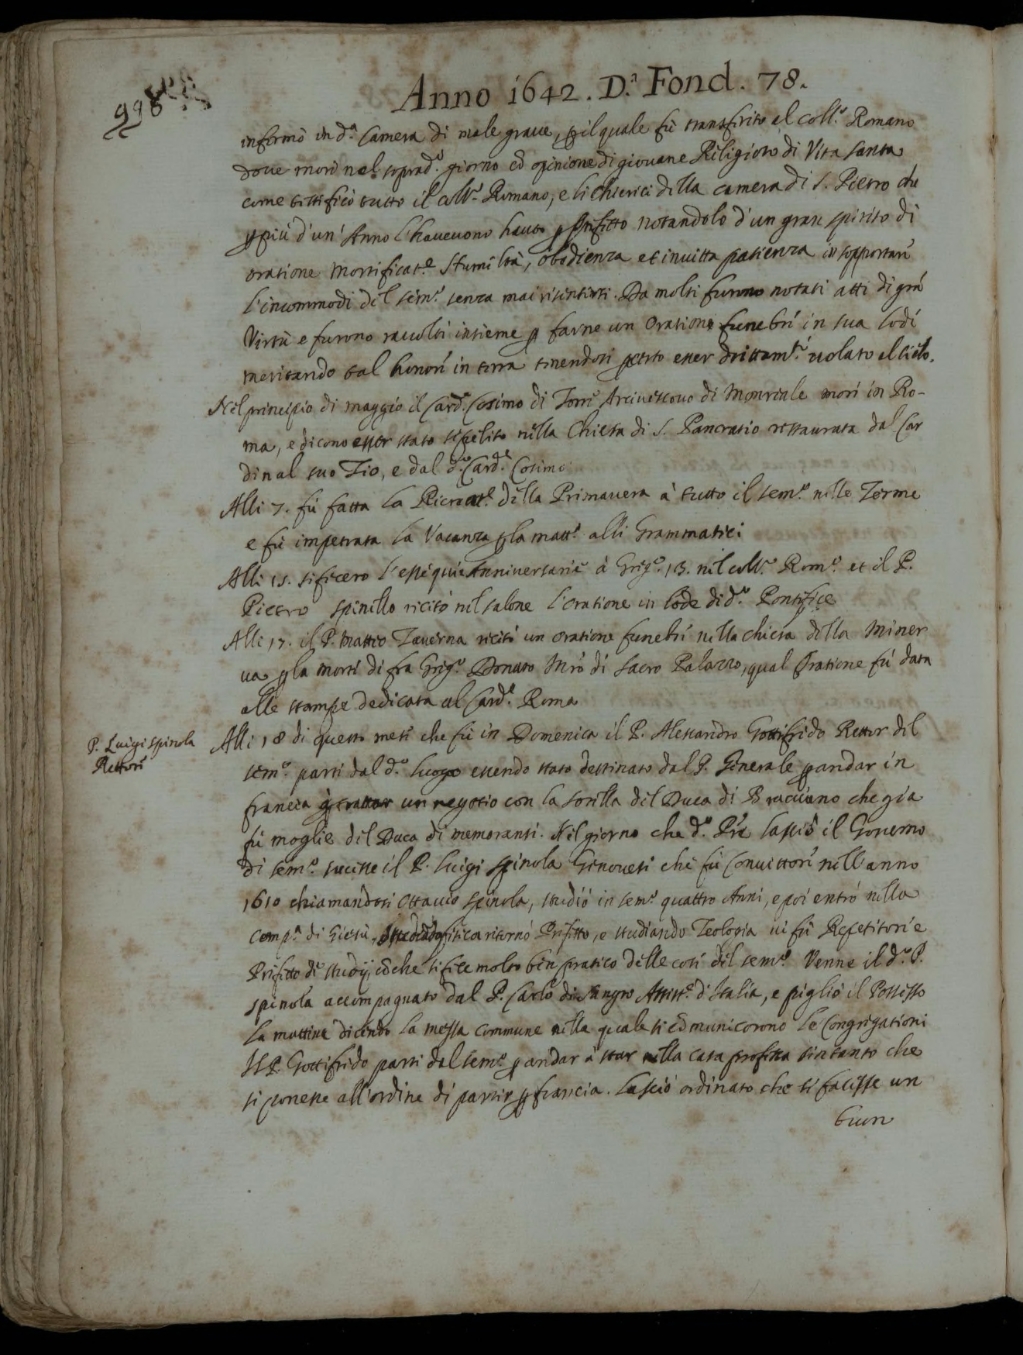 998
Anno 1642. D.ª Fond. 78.
infermò in d.ª Camera di male graue, p il quale fù transferito al Coll.º Romano
doue morì nel soprad.º giorno cõ opinione di giouane Religioso di Vita santa
come testificò tutto il Coll.º Romano, e li chierici della camera di S. Pietro che
p più d'un' Anno l'haueuono hauto p Prefetto notandolo d'un gran spirito di
oratione mortificat.e Humiltà, obedienza et inuitta patienza in sopportare
l'incommodi del sem.º senza mai risentirsi. Da molti furono notati atti di grã
Virtù e furono raccolti insieme p farne un Oratione funebri in sua lode
meritando tal honori in terra tenendosi p certo esser drittam.te uolato al Cielo.
Nel principio di maggio il Card. Cosimo di Torre Arciuescouo di Monreale morì in Ro-
ma, e dicono esser stato sepelito nella Chiesa di S. Pancratio restaurata dal Car
dinal suo Tio, e dal d.º Card.e Cosimo
Alli 7. fù fatta la Ricreat.e della Primauera à tutto il sem.º nelle Terme
e fù impetrata la Vacanza p la matt.ª alli Grammatici
Alli 15. si fecero l'essequie Anniversarie à Greg.º 13. nel Coll.º Rom.º et il P.
Pietro Spinello recitò nel salone l'oratione in lode di d.º Pontefice
Alli 17. il P. Matteo Tauerna recitò un oratione funebri nella chiesa della Miner
ua p la morte di fra Greg.º Donato Mrõ di Sacro Palazzo, qual Oratione fù data
alle stampe dedicata al Card.e Roma
P. Luigi Spinola
Rettore
Alli 18 di questo mese che fù in Domenica il P. Alessandro Gottifredo Rettor del
sem.º partì dal d.º luogo essendo stato destinato dal P. Generale p andar in
francia p trattar un negotio con la sorella del Duca di Bracciano che già
fù moglie del Duca di Memoransi. Nel giorno che d.º Pre lasciò il Gouerno
di sem.º successe il P. Luigi Spinola Genouese che fù Conuittore nell'anno
1610 chiamandosi Ottauio Spinola, studiò in sem.º quattro Anni, e poi entrò nella
Comp.ª di Giesù. ritornò Prefetto, e studiando Teologia ui fù Repetitore e
Prefetto de studij, cõ che si fece molto ben pratico delle cose del sem.º Venne il d.º P.
Spinola accompagnato dal P. Carlo di Sangro Assist.e d'Italia, e pigliò il Possesso
la mattina dicendo la messa commune nella quale si cõmunicorono le Congregationi
Il P. Gottifredo partì dal sem.º p andar à star nella casa professa sintanto che
si ponesse all'ordine di partir p francia. Lasciò ordinato che si facesse un